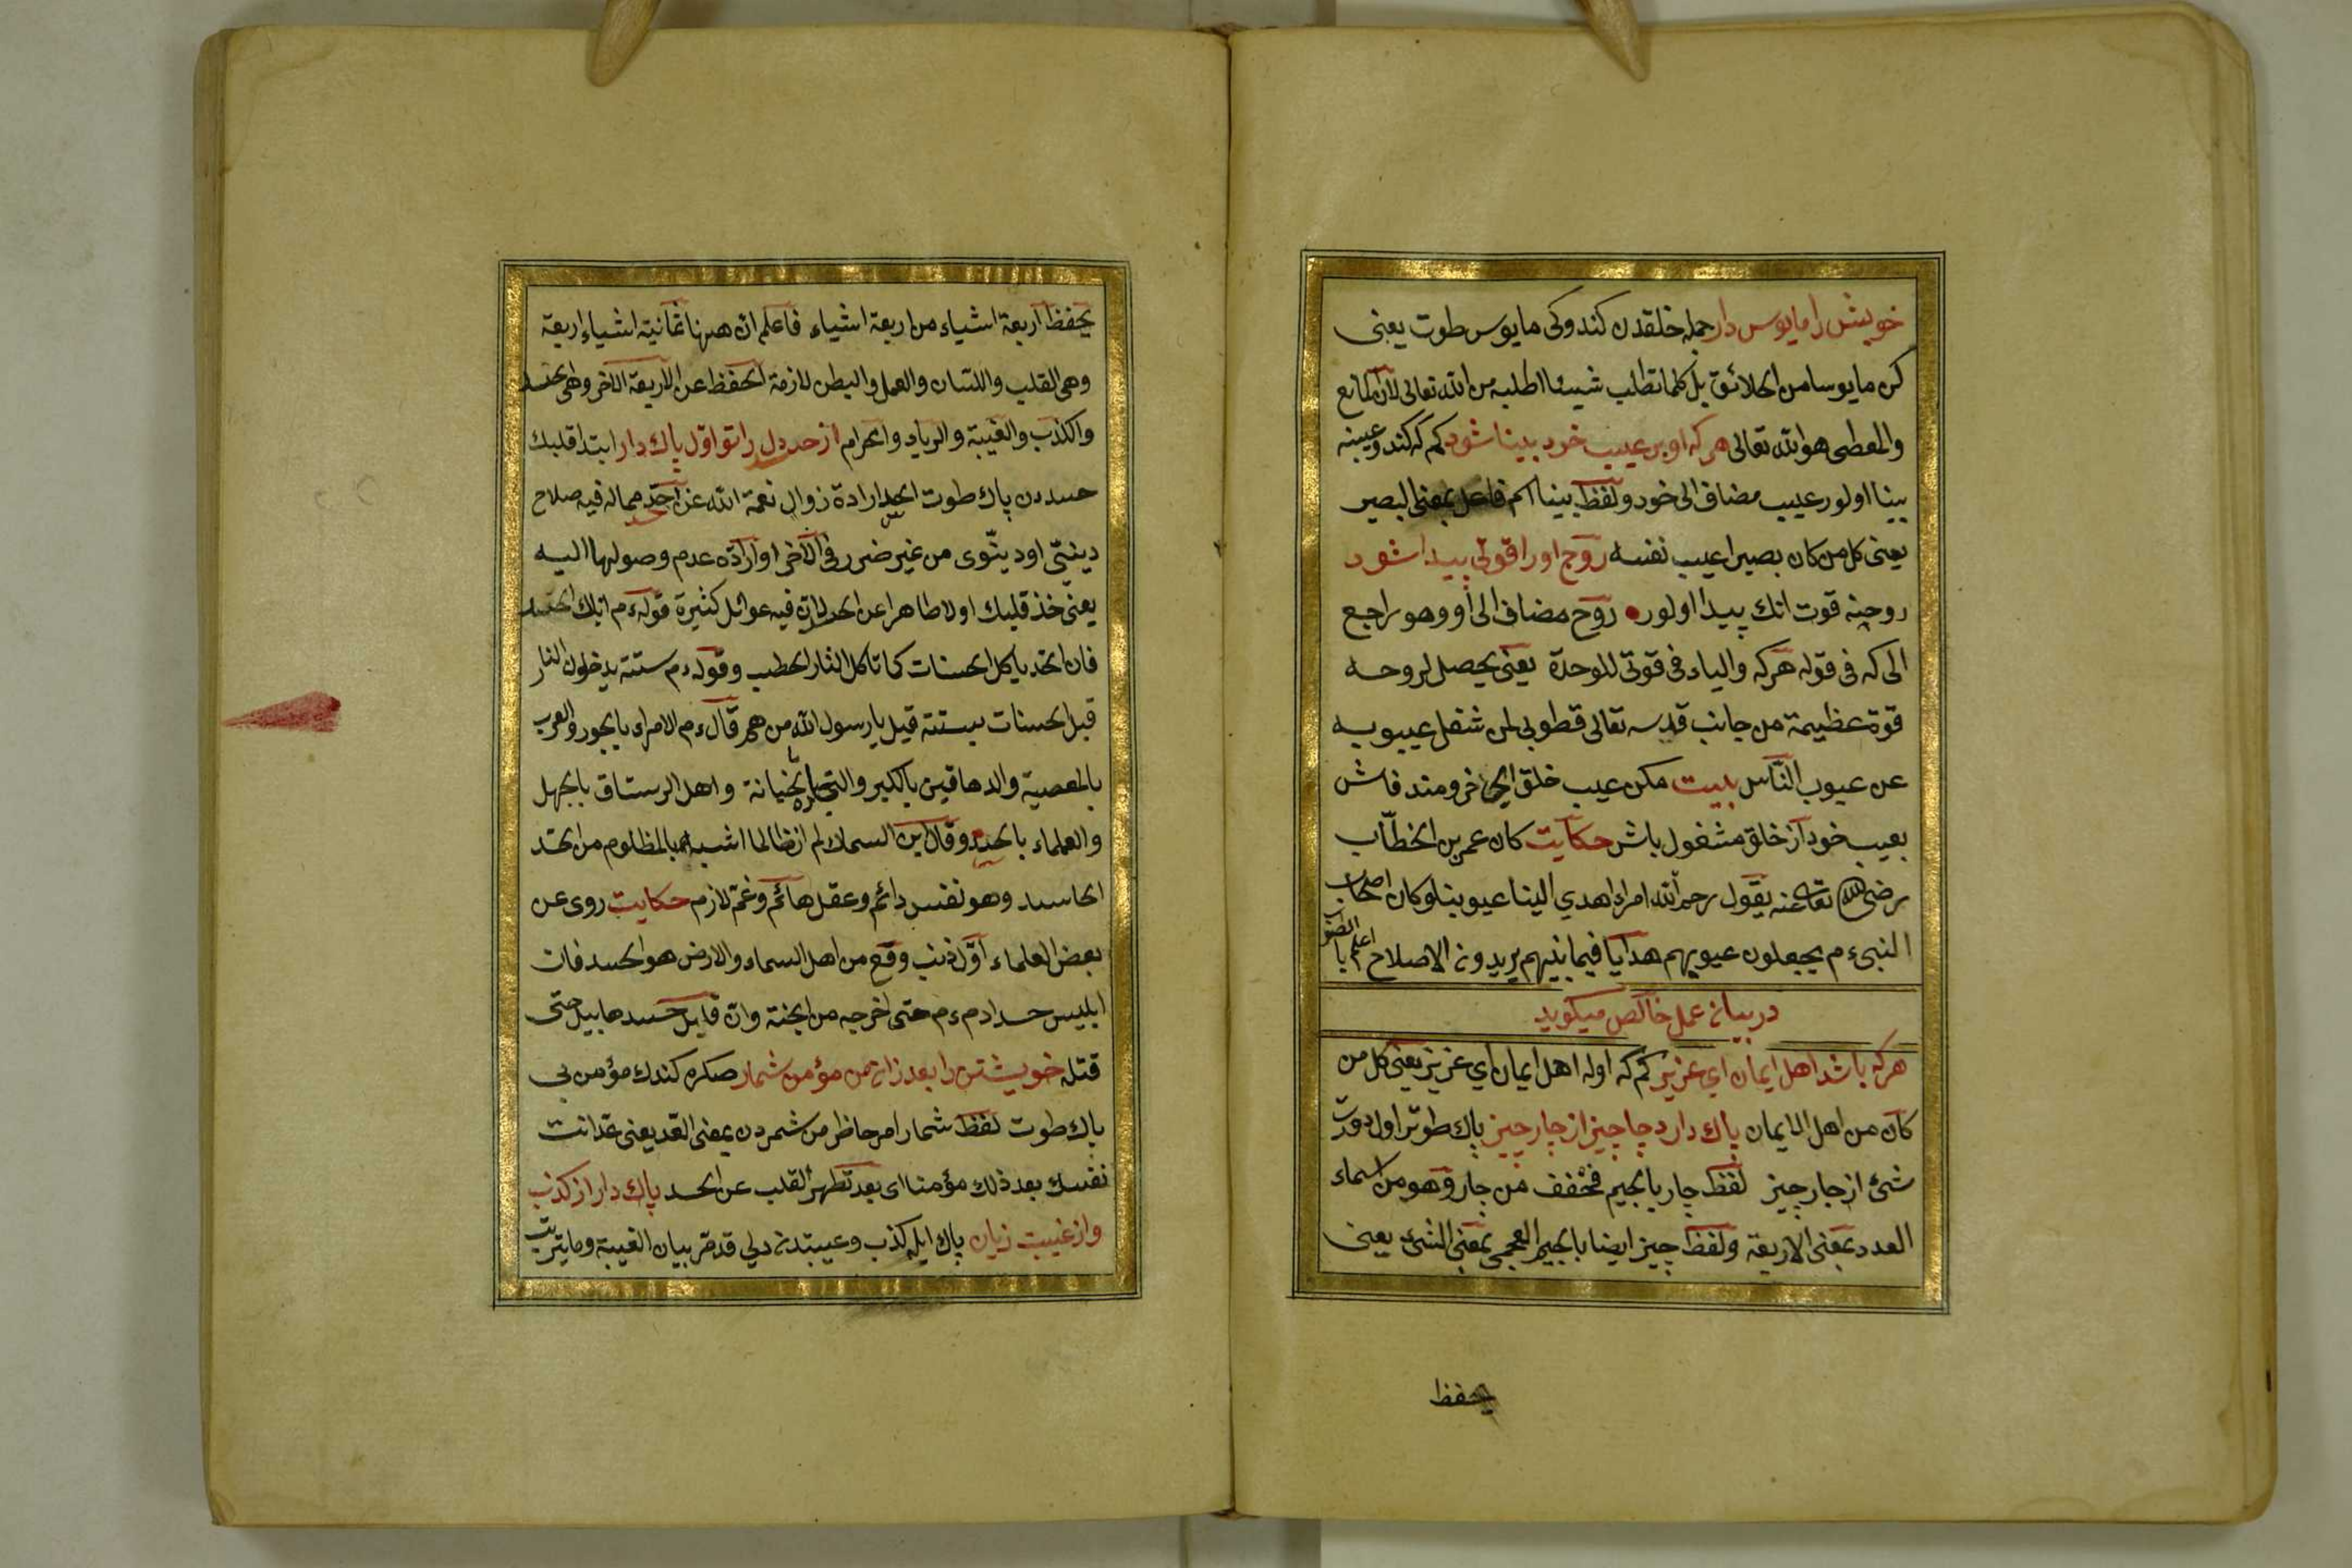 خويش را مايوس دار جمله خلقدن كندوكى مايوس طوت يعنى
كن مايوسا من الخلائق بل كلما تطلب شيئا اطلبه من الله تعالى لان المانع
والمعطى هو الله تعالى هركه او بر عيب خود بينا شود كم كه كندو عيبنه
بينا اولور عيب مضاف الى خود ولفظ بينا اسم فاعل بمعنى البصير
يعنى كل من كان بصيرا عيب نفسه روح اورا قوتى پيدا شود
روحنه قوت انك پيدا اولور روح مضاف الى او وهو راجع
الى كه فى قوله هركه والياء فى قوتى للوحدة يعنى يحصل لروحه
قوة عظيمة من جانب قدسه تعالى فطوبى لمن شغل عيبوبه
عن عيوب الناس بيت مكن عيب خلق اى خرومند فاش
بعيب خود از خلق مشغول باش حكايت كان عمر بن الخطّاب
رضى الله تعا عنه يقول رحم الله امراء اهدي الينا عيوبنا وكان اصحاب
النبىء م يجعلون عيوبهم هدايا فيما بينهم يريدونه الاصلاح اعلم يا
در بيان عمل خالص ميكويد
هركه باشد اهل ايمان اي عزيز كم كه اوله اهل ايمان اي عزيز يعنى كل من
كان من اهل الايمان پاك دارد چا چيز از چار چيز پاك طوتر اول درت
شئ از چار چيز لفظ چار يا بجيم مخفف من چار وهو من اسماء
العدد بمعنى الاربعة ولفظ چيز ايضا بالجيم العجمى بمعنى الشئ يعنى
يحفظ
يحفظ اربعة اشياء من اربعة اشياء فاعلم ان ههنا ثمانية اشياء اربعة
وهى القلب واللسان والعمل والبطن لازمة الحفظ عن الاربعة الاخر وهى الحسد
والكذب والغيبة والرياء والحرام از حسد دل را تو اول پاك دار ابتدا قلبك
حسددن پاك طوت الحسد ارادة زوال نعمة الله عن احد مماله فيه صلاح
دينىّ او دينّوى من غير ضرر فى الآخر او ارادة عدم وصولها اليه
يعنى خذ قلبك اولا طاهرا عن الحسد لان فيه عوائل كثيرة قوله ءم اياك الحسد
فان الحسد ياكل الحسنات كما تاكل النار الحطب وقوله ءم ستة يدخلون النار
قبل الحسنات بستة قيل يا رسول الله من هم قال ءم الامراء بالجور والعرب
بالمعصية والدهاقين بالكبر والتجار بالخيانة واهل الرستاق بالجهل
والعلماء بالحسد وقال ابن السماك لم ار ظالما اشبه بالمظلوم من الحسد
الحاسد وهو نفس دائم وعقل هائم وغم لازم حكايت روى عن
بعض العلماء اوّل ذنب وقع من اهل السماء والارض هو الحسد فان
ابليس حسد ادم ءم حتى اخرجه من الجنة وان قابيل حسد هابيل حتى
قتله خويشتن را بعد زان من مؤمن شمار صكره كندك مؤمن بى
باك طوت لفظ شمار امر حاظر من شمردن بمعنى العد يعنى عد انت
نفسك بعد ذلك مؤمنا اى بعد تطهر القلب عن الحسد پاك دار از كذب
واز غيبت زبان پاك ايله كذب وعيبتدن دلي قد مر بيان الغيبة وما يترتب